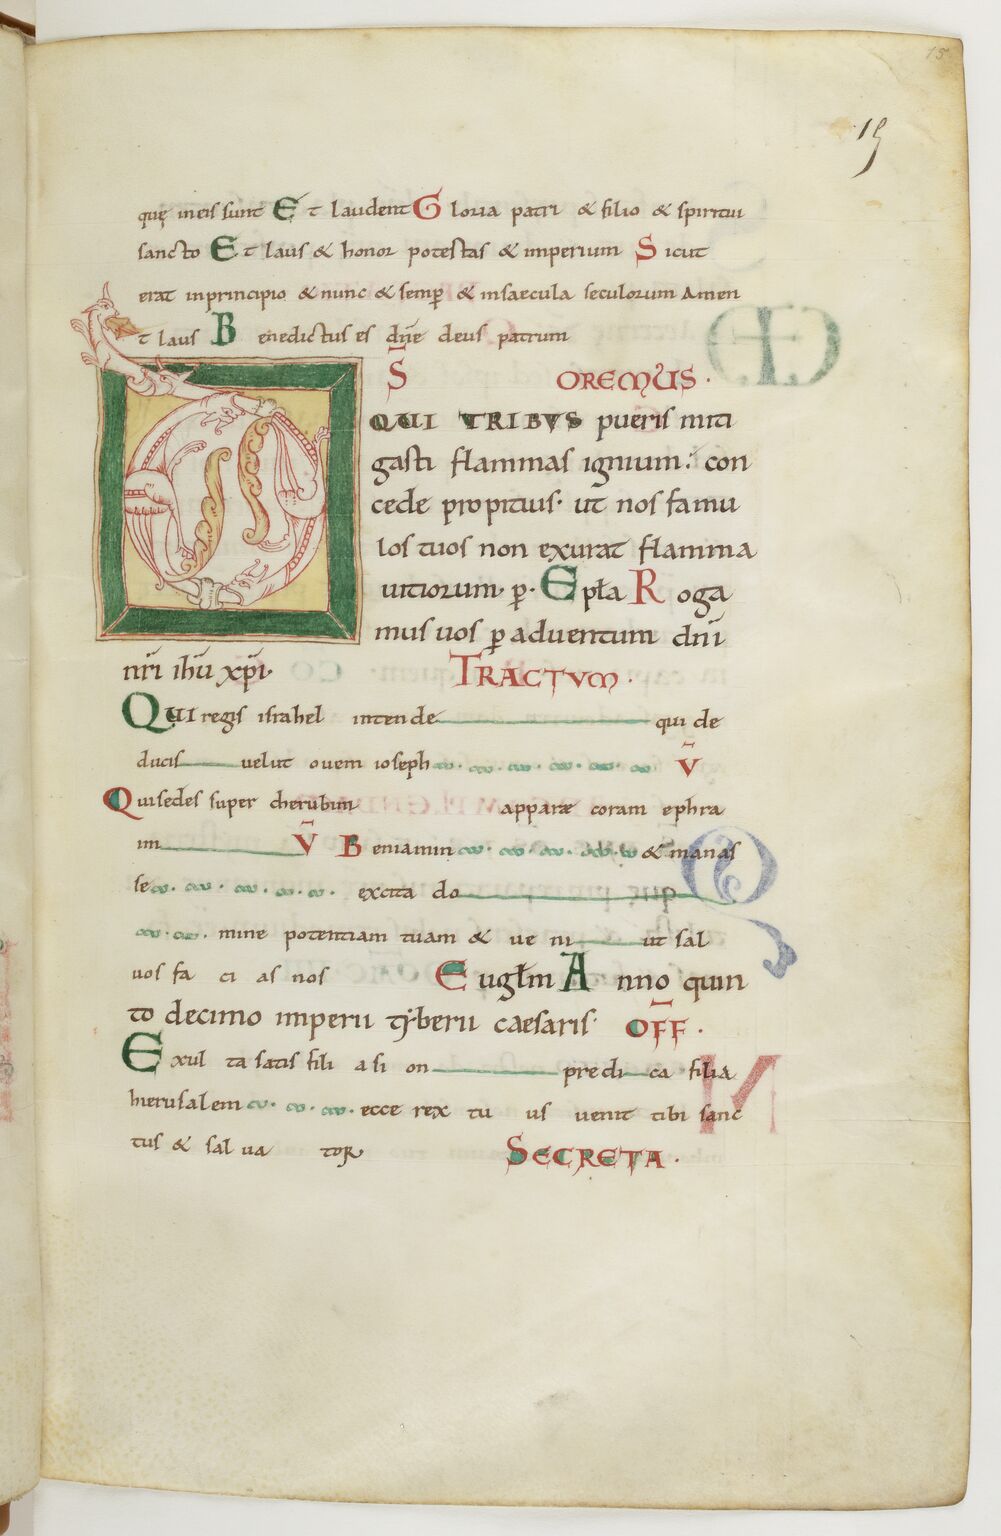 15
15
quę in eis sunt E t laudent G loria patri & filio & spiritui
sancto E t laus & honor potestas & imperium S icut
erat in principio & nunc & semꝑ & in saecula seculorum Amen
t laus B enedictus es dn̄e deus patrum
S̄ OREMUS ·
QUI TRIBVS pueris miti
gasti flammas ignium: con
cede propitius· ut nos famu
los tuos non exurat flamma
uitiorum· ꝑ· Epła R oga
mus uos ꝑ aduentum dn̄i
nr̄i ih̄u xp̄i· TRACTVM ·
QUI regis israhel intende qui de
ducis uelut ouem ioseph V̄
Qui sedes super cherubim apparae coram ephra
im V̄ B eniamin & manas
se excita do
mine potentiam tuam & ue ni ut sal
uos fa ci as nos E ugłm A nno quin
to decimo imperii tyberii caesaris· OF̄F ·
E xul ta satis fili a si on predi ca filia
hierusalem ecce rex tu us uenit tibi sanc
tus & sal ua tor SECRETA ·